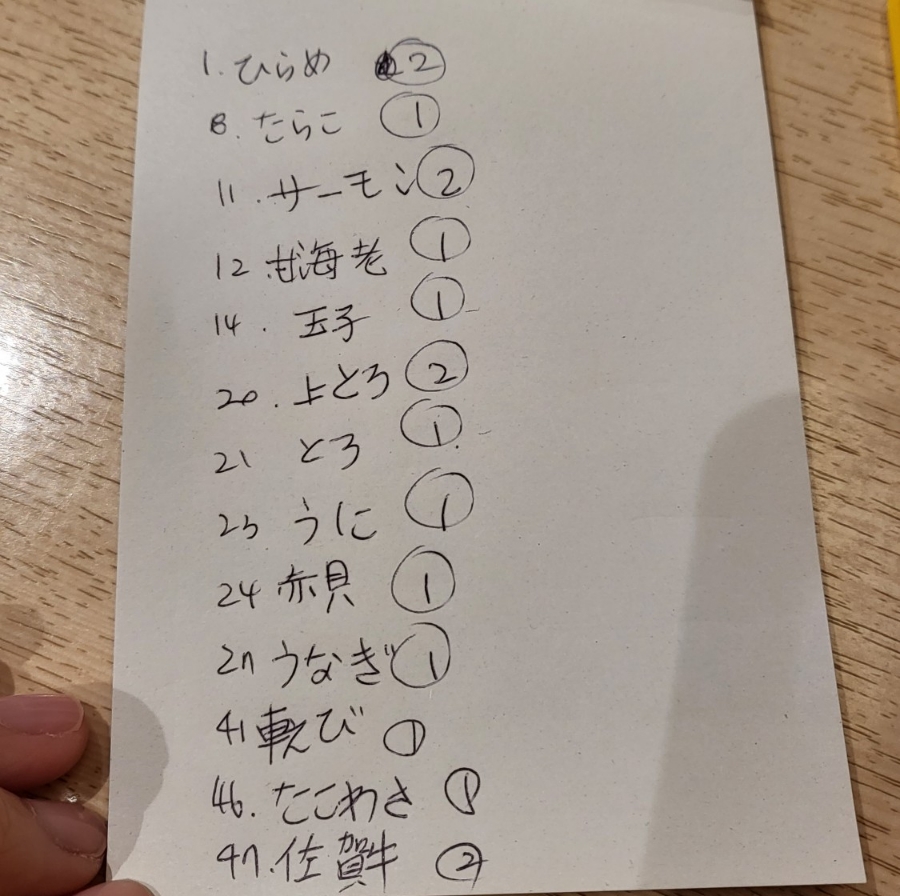 1. ひらめ ②
8. たらこ ①
11. サーモン ②
12 甘海老 ①
14. 玉子 ①
20. 上とろ ②
21 とろ ①
23 うに ①
24 赤貝 ①
27 うなぎ ①
41 車えび ①
46. たこわさ ①
47. 佐賀牛 ②